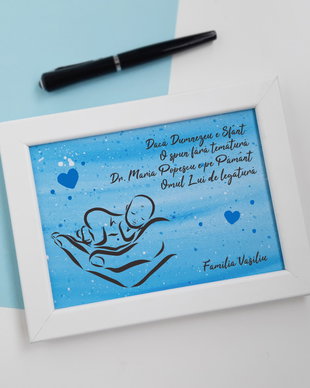 Dacă Dumnezeu e Sfânt
O spun fără tematură
Dr. Maria Popescu e pe Pamant
Omul Lui de legatură
Familia Vasiliu